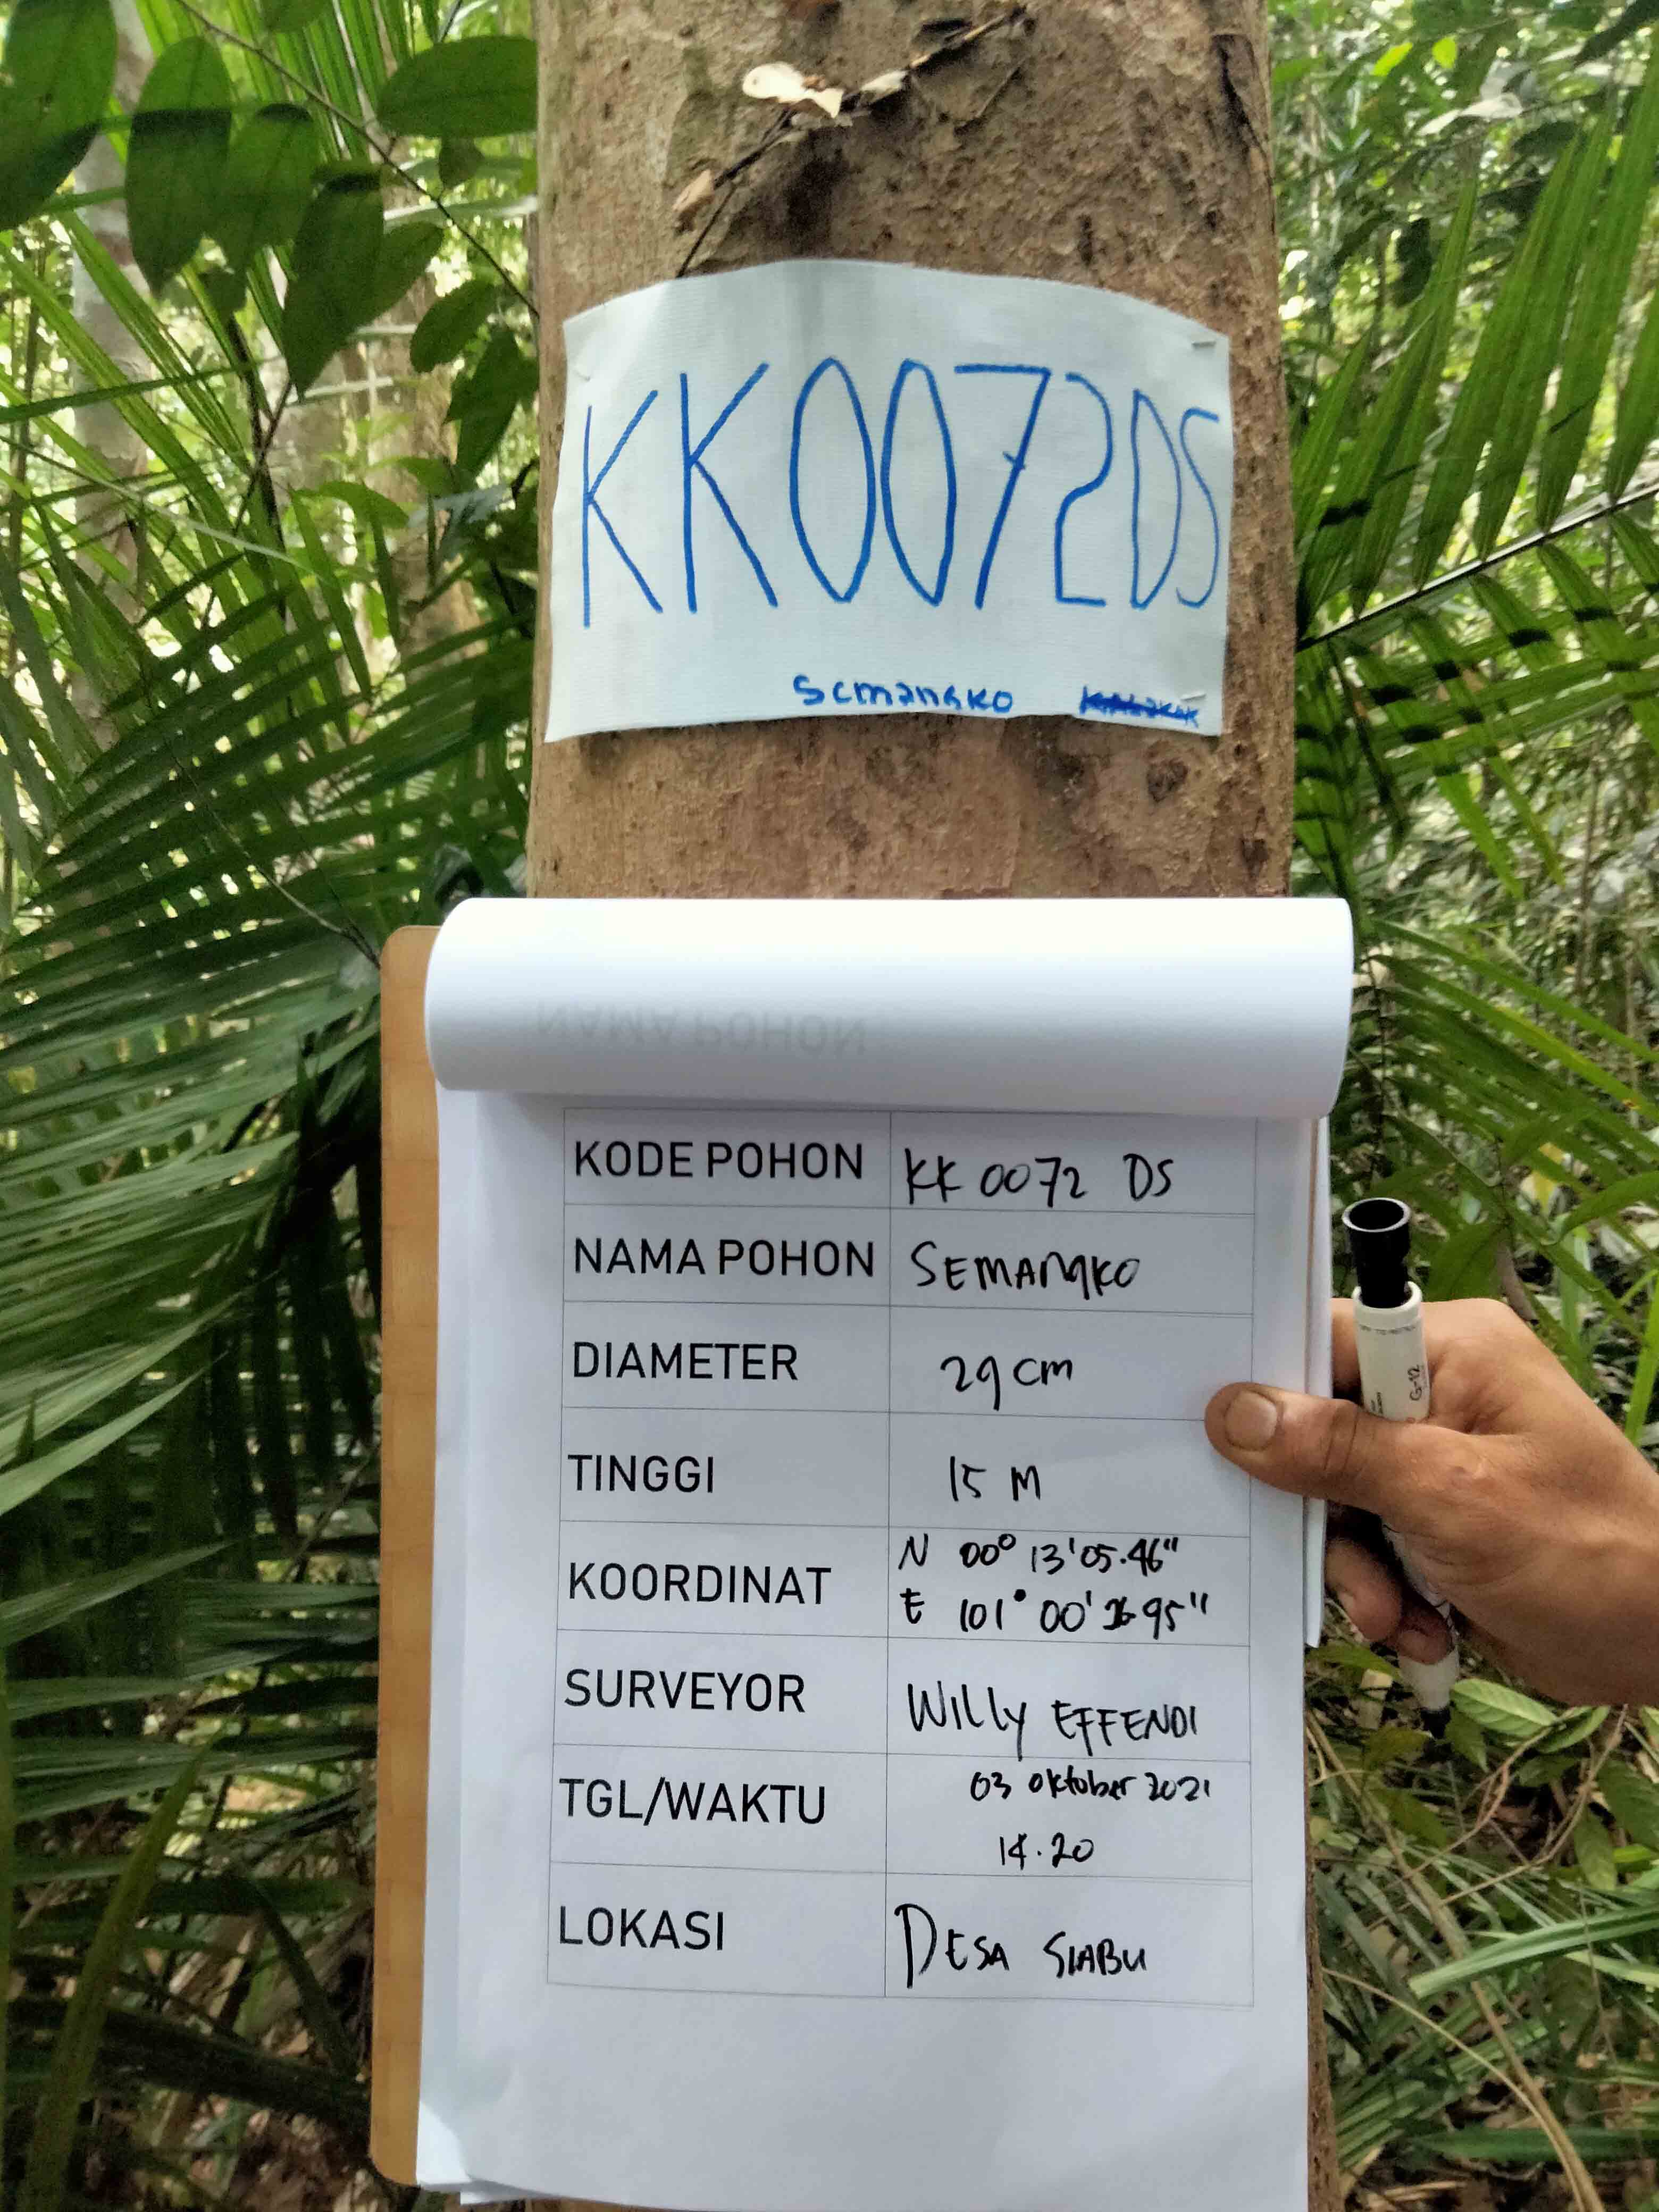 KK0072DS
Semangko
NAMA POHON
KODE POHON KK 0072 DS
NAMA POHON SEMANGKO
DIAMETER 29 cm
TINGGI 15 M
KOORDINAT N 00° 13' 05.46"
E 101° 00'
SURVEYOR Willy EFFENDI
TGL/WAKTU 03 Oktober 2021
14.20
LOKASI DESA SIABU
G-12